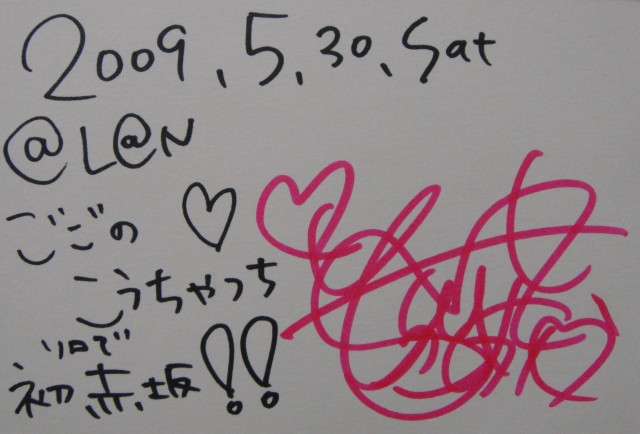 2009.5.30.Sat
@L@N
ごごの♡
こうちゃっち
ソロで
初赤坂!!